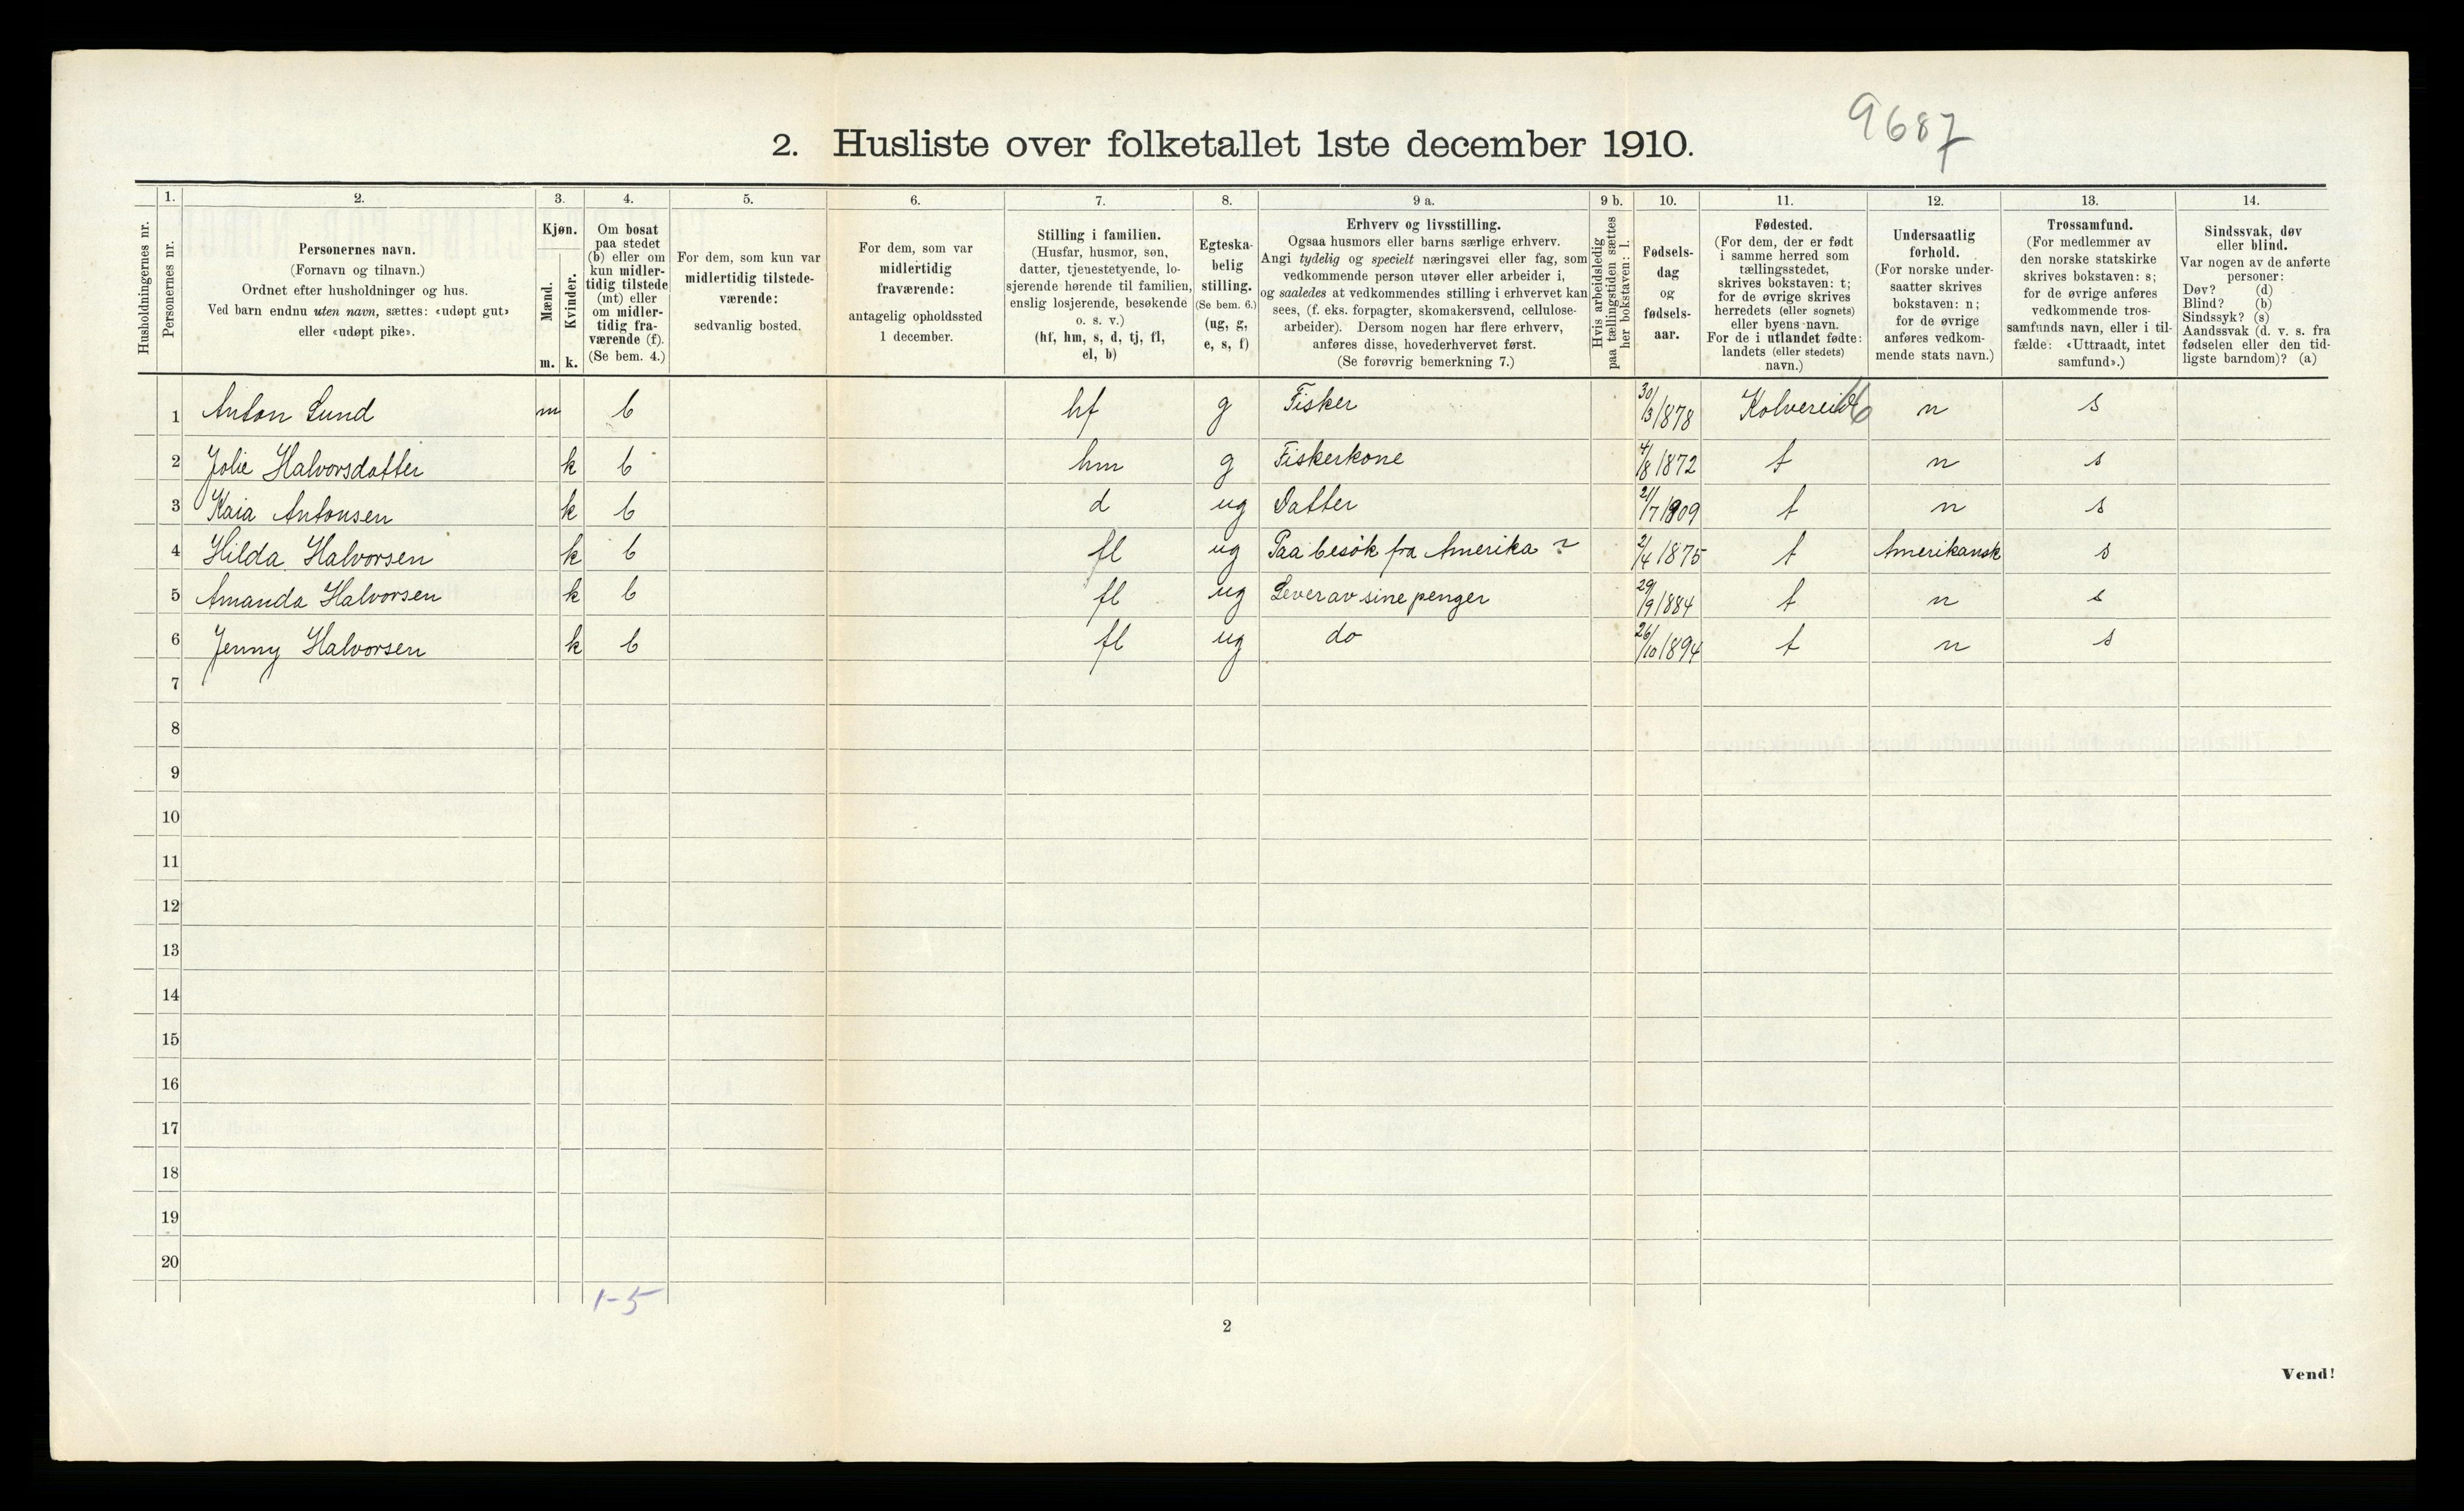 9687
2. Husliste over folketallet 1ste december 1910.
Husholdningernes nr.
1.
Personernes nr.
2.
Personernes navn.
(Fornavn og tilnavn.)
Ordnet efter husholdninger og hus.
Ved barn endnu uten navn, sættes: «udøpt gut»
eller «udøpt pike».
3.
Kjøn.
Mænd.
Kvinder.
m. k.
4.
Om bosat
paa stedet
(b) eller om
kun midler-
tidig tilstede
(mt) eller
om midler-
tidig fra-
værende (f).
(Se bem. 4.)
5.
For dem, som kun var
midlertidig tilstede-
værende:
sedvanlig bosted.
6.
For dem, som var
midlertidig
fraværende:
antagelig opholdssted
1 december.
7.
Stilling i familien.
(Husfar, husmor, søn,
datter, tjenestetyende, lo-
sjerende hørende til familien,
enslig losjerende, besøkende
o. s. v.)
(hf, hm, s, d, tj, fl,
el, b)
8.
Egteska-
belig
stilling.
(Se bem. 6.)
(ug, g,
e, s, f)
9 a.
Erhverv og livsstilling.
Ogsaa husmors eller barns særlige erhverv.
Angi tydelig og specielt næringsvei eller fag, som
vedkommende person utøver eller arbeider i,
og saaledes at vedkommendes stilling i erhvervet kan
sees, (f. eks. forpagter, skomakersvend, cellulose-
arbeider). Dersom nogen har flere erhverv,
anføres disse, hovederhvervet først.
(Se forøvrig bemerkning 7.)
9 b.
Hvis arbeidsledig
paa tællingstiden sættes
her bokstaven: l.
10.
Fødsels-
dag
og
fødsels-
aar.
11.
Fødested.
(For dem, der er født
i samme herred som
tællingsstedet,
skrives bokstaven: t;
for de øvrige skrives
herredets (eller sognets)
eller byens navn.
For de i utlandet fødte:
landets (eller stedets)
navn.)
12.
Undersaatlig
forhold.
(For norske under-
saatter skrives
bokstaven: n;
for de øvrige
anføres vedkom-
mende stats navn.)
13.
Trossamfund.
(For medlemmer av
den norske statskirke
skrives bokstaven: s;
for de øvrige anføres
vedkommende tros-
samfunds navn, eller i til-
fælde: «Uttraadt, intet
samfund».)
14.
Sindssvak, døv
eller blind.
Var nogen av de anførte
personer:
Døv? (d)
Blind? (b)
Sindssyk? (s)
Aandssvak (d. v. s. fra
fødselen eller den tid-
ligste barndom)? (a)
1 Anton Lund m b hf g Fisker 30/3 1878 Kolvereid n s
2 Jolie Halvorsdatter k b hm g Fiskerkone 4/8 1872 t n s
3 Kaia Antonsen k b d ug Datter 21/7 1909 t n s
4 Hilda Halvorsen k b fl ug Paa besök fra Amerika ? 2/4 1875 t Amerikansk s
5 Amanda Halvorsen k b fl ug Lever av sine penger 29/9 1884 t n s
6 Jenny Halvorsen k b fl ug do 26/10 1894 t n s
7
8
9
10
11
12
13
14
15
16
17
18
19
20
1-5
2
Vend!